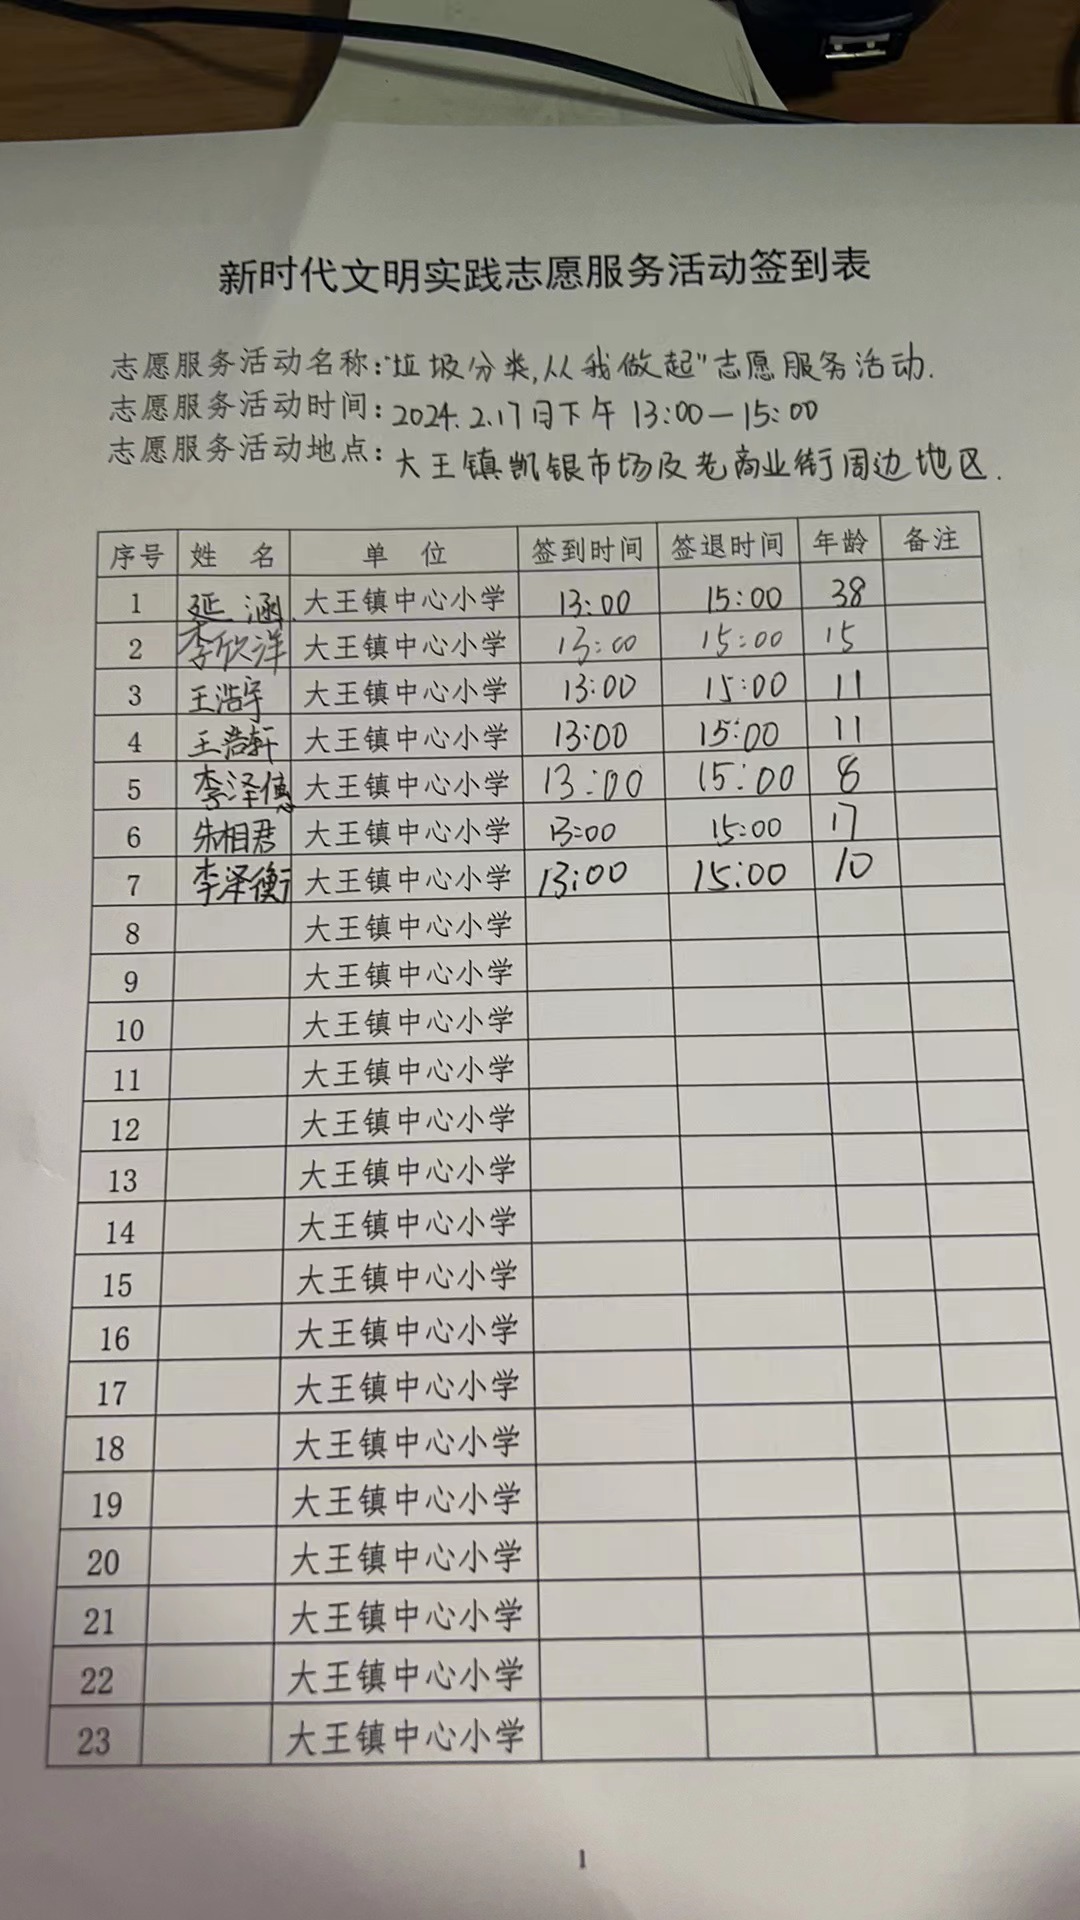 新时代文明实践志愿服务活动签到表
志愿服务活动名称:“垃圾分类,从我做起”志愿服务活动.
志愿服务活动时间:2024.2.17日下午 13:00—15:00
志愿服务活动地点:大王镇凯银市场及老商业街周边地区.
序号 姓 名 单 位 签到时间 签退时间 年龄 备注
1 延涵 大王镇中心小学 13:00 15:00 38
2 李欣洋 大王镇中心小学 13:00 15:00 15
3 王浩宇 大王镇中心小学 13:00 15:00 11
4 王浩轩 大王镇中心小学 13:00 15:00 11
5 李泽德 大王镇中心小学 13:00 15:00 8
6 朱相君 大王镇中心小学 13:00 15:00 17
7 李泽衡 大王镇中心小学 13:00 15:00 10
8 大王镇中心小学
9 大王镇中心小学
10 大王镇中心小学
11 大王镇中心小学
12 大王镇中心小学
13 大王镇中心小学
14 大王镇中心小学
15 大王镇中心小学
16 大王镇中心小学
17 大王镇中心小学
18 大王镇中心小学
19 大王镇中心小学
20 大王镇中心小学
21 大王镇中心小学
22 大王镇中心小学
23 大王镇中心小学
1